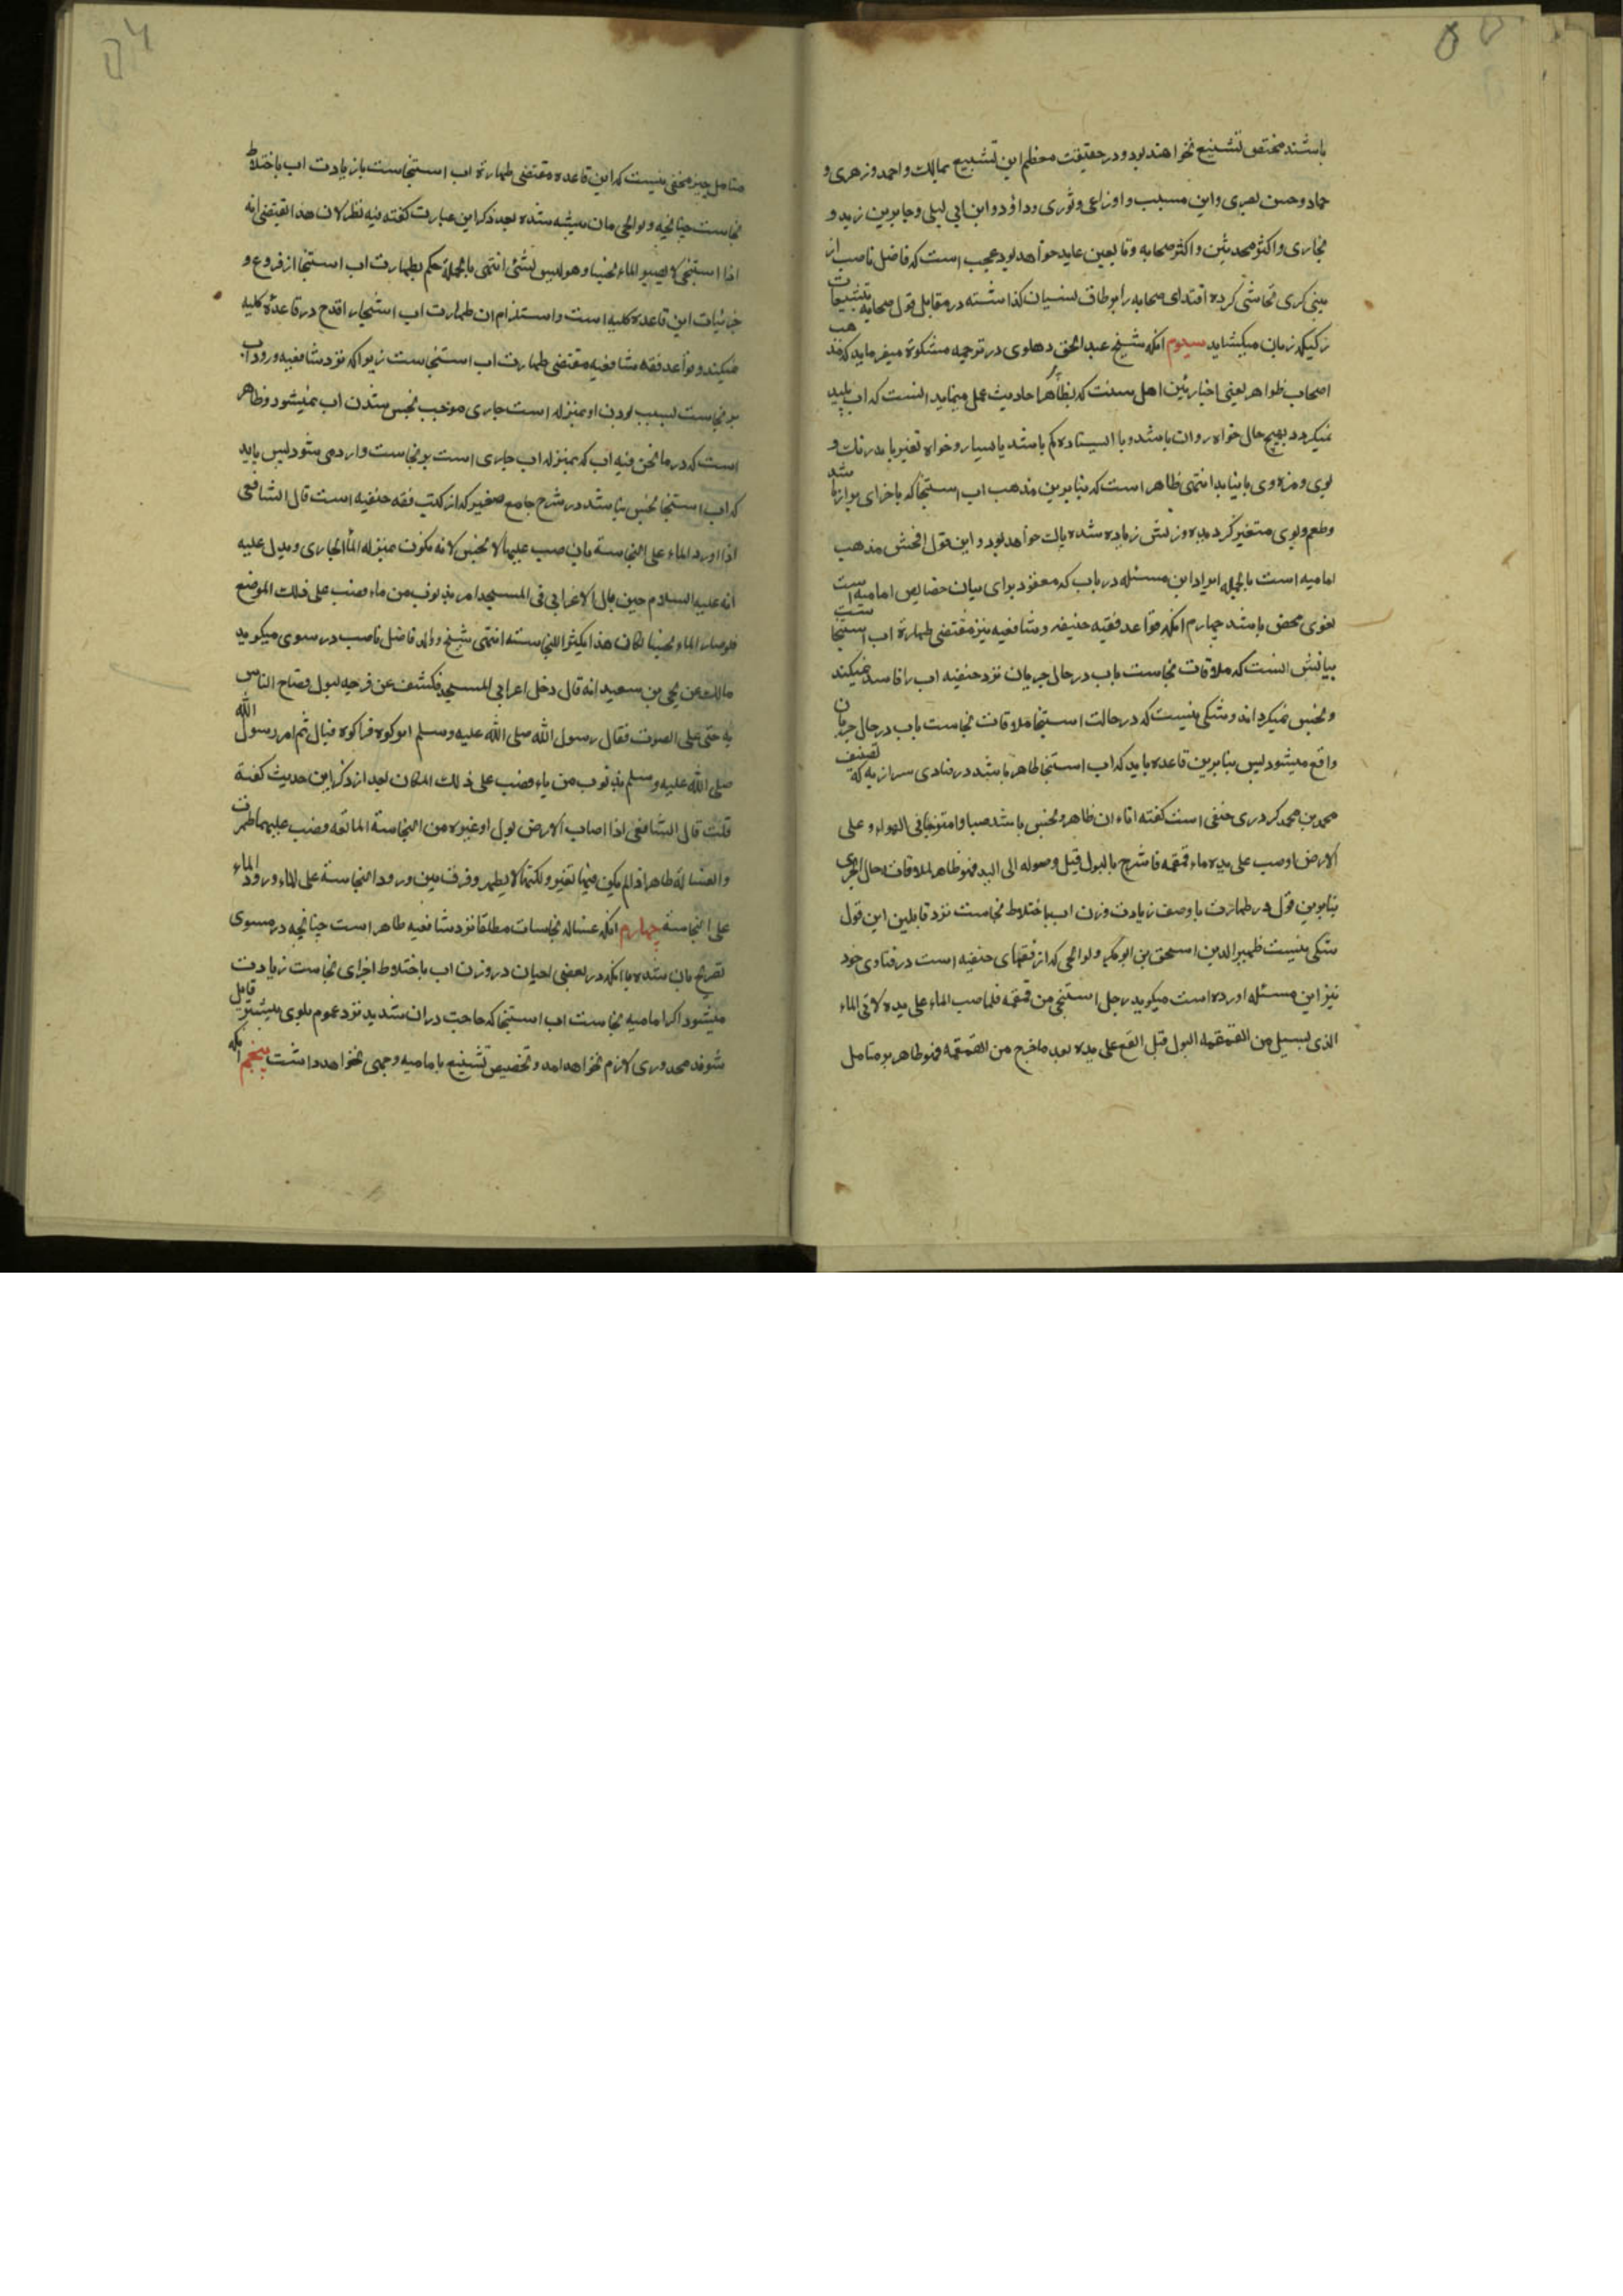 باشند مختص تشنیع نخواهند بود و در حقیقت معظم این تشنیع بمالک و احمد و زهری و
حماد و حسن بصری و ابن مسیب و اوزاعی و ثوری و داؤد و ابن ابی لیلی و جابر بن زید و
بخاری و اکثر محدثین و اکثر صحابه و تابعین عاید خواهد بود عجب است که فاضل ناصب از
سنی کری تحاشی کرده اقتدای صحابه را بر طاق نسیان کذاشته در مقابل قول صحابه تشنیعات
رکیکه زبان میکشاید سیوم آنکه شیخ عبد الحق دهلوی در ترجمه مشکوة میفرماید که مذهب
اصحاب ظواهر یعنی اخباریین اهل سنت که بظاهر احادیث عمل مینماید انست که اب پلید
نمیکردد بهیچ حال خواه روان باشد و یا ایستاده کم باشد یا بسیار و خواه تغیر یابد رنک و
بوی و مزه وی یا نیابد انتهی ظاهر است که بنابرین مذهب اب استنجا که باجزای براز باشد
و طعم و بوی متغیر کردیده وزنش زیاده شده پاک خواهد بود و این قول افحش مذهب
امامیه است بالجمله ایراد این مسئله در باب که معقود برای بیان خصایص امامیه است
لغوی محض باشد چهارم آنکه قواعد فقیه حنیفه و شافعیه نیز مقتضی طهارة اب استنجاست
بیانش انست که ملاقات نجاست باب در حال جریان نزد حنفیه اب را فاسد نمیکند
و نجس نمیکرداند و شکی نیست که در حالت استنجا ملاقات نجاست باب در حال جریان
واقع میشود پس بنابرین قاعده باید که اب استنجا طاهر باشد در فتاوی سرازیه که تصنیف
محمد بن محمد کردری حنفی است کفته اناءان طاهر و نجس باشد صبا و امتزجا فی الهواء و علی
الارض او صب علی یده ماء قمقمه فامتزج بالبول قبل وصوله الی الید فهو طاهر لملاقات حال الجری
بنابرین قول در طهارت با وصف زیادت وزن اب باختلاط نجاست نزد قابلین این قول
شکی نیست ظهیر الدین اسحق بن ابو بکر ولوالجی که از فقهای حنفیه است در فتاوی خود
نیز این مسئله اورده است میکوید رجل استنجی من قمقمه فلما صب الماء علی یده لاقی الماء
الذی یسیل من القمقمه البول قبل ان یقع علی یده بعد ما خرج من القمقمه فهو طاهر بر متامل
متامل چیز مخفی نیست که این قاعده مقتضی طهارة اب استنجاست باز یادت اب باختلاط
نجاست چنانچه ولوالجی بان متنبه شده بعد ذکر این عبارت کفته فیه نظر لان هذا یقتضی انه
اذا استنجی لا یصیر الماء نجسا و هو لیس بشئ انتهی بالجملة حکم بطهارت اب استنجا از فروع و
جزئیات این قاعده کلیه است و استلزام ان طهارت اب استنجا را قدح در قاعده کلیه
نمیکند و قواعد فقه شافعیه مقتضی طهارت اب استنجاست زیرا که نزد شافعیه ورود اب
بر نجاست بسبب بودن او بمنزله است جاری موجب نجس شدن اب نمیشود و ظاهر
است که در ما نحن فیه اب که بمنزله اب جاری است بر نجاست وارد می شود پس باید
که اب استنجا نجس نباشد در شرح جامع صغیر که از کتب فقه حنفیه است قال الشافعی
اذا اورد الماء علی النجاسة بان صب علیها لا نجس لانه یکون بمنزله الماء الجاری و یدل علیه
انه علیه السلام حین بال الاعرابی فی المسجد امر بذنوب من ماء فصب علی ذلک الموضع
فلو صار الماء نجسا لکان هذا یکثر النجاسته انتهی شیخ و والد فاضل ناصب در سوی میکوید
مالک عن یحی بن سعید انه قال دخل اعرابی المسجد فکشف عن فرجه لیبول فصاح الناس
به حتی علی الصوت فقال رسول الله صلی الله علیه وسلم اترکوه فترکوه فبال ثم امر رسول الله
صلی الله علیه وسلم بذنوب من ماء فصب علی ذلک المکان بعد از ذکر این حدیث کفته
قلت قال الشافعی اذا اصاب الارض بول او غیره من النجاسة المائعه فصب علیها طهرت
والغسالة طاهرة اذا لم یکن فیها تغیر ولکنها لا یطهر و فرق بین ورود النجاسة علی الماء و ورود الماء
علی النجاسة چهارم آنکه غساله نجاسات مطلقا نزد شافعیه طاهر است چنانچه در مسوی
تصریح بان شده با آنکه در بعضی احیان در وزن اب باختلاط اجزای نجاست زیادت
میشود اکر امامیه نجاست اب استنجا که حاجت دران شدید نزد عموم بلوی بیشتر قایل
شوند محدوری لازم نخواهد امد و تخصیص تشنیع بامامیه وجهی نخواهد داشت پنجم آنکه